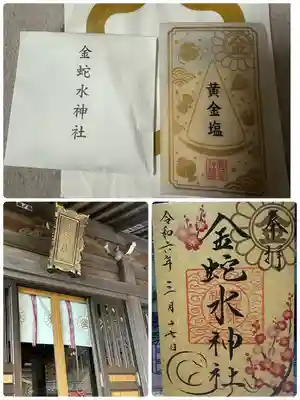 金蛇水神社
金
黄金塩
奉拝
金蛇水神社
令和六年 三月十七日